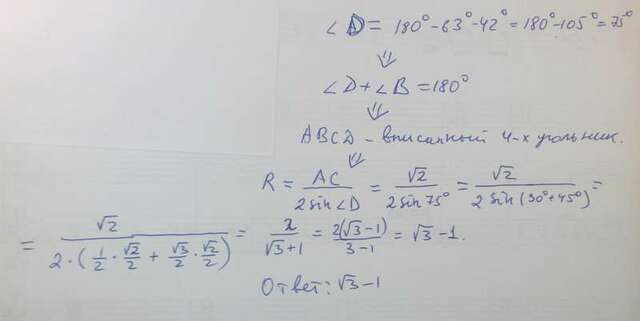 ∠D = 180° - 63° - 42° = 180° - 105° = 75°
⇓
∠D + ∠B = 180°
⇓
ABCD - вписанный 4-х угольник.
⇓
R = AC / (2 sin∠D) = √2 / (2 sin 75°) = √2 / (2 sin (30° + 45°)) =
= √2 / (2 · (1/2 · √2/2 + √3/2 · √2/2)) = 2 / (√3 + 1) = 2(√3 - 1) / (3 - 1) = √3 - 1.
Ответ: √3 - 1